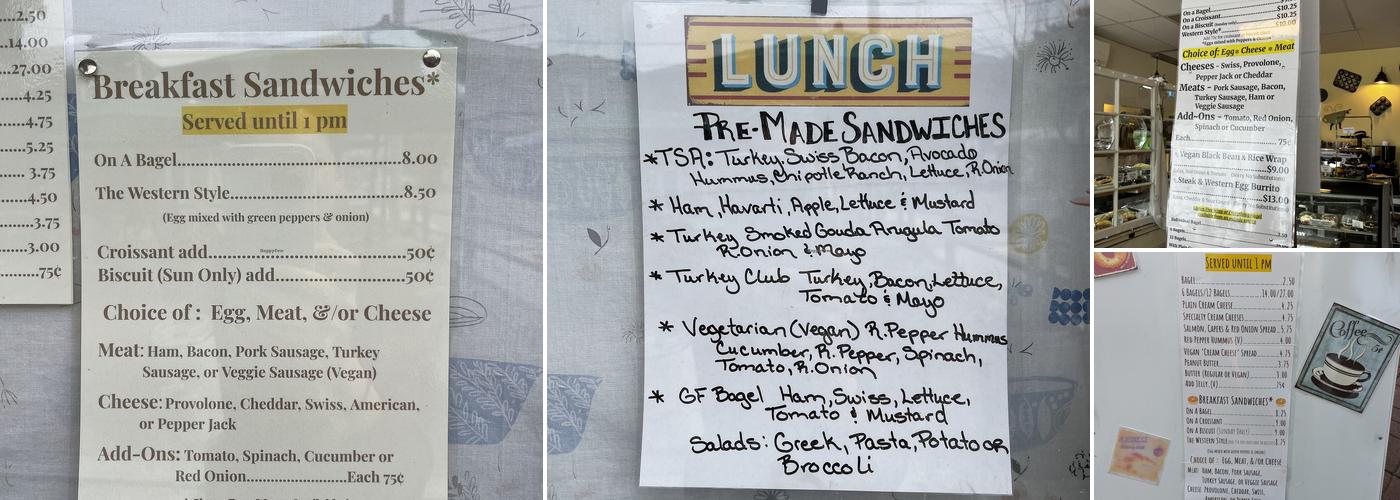 2.50
14.00
27.00
4.25
4.75
5.25
3.75
4.50
3.75
3.00
75¢
Breakfast Sandwiches*
Served until 1 pm
On A Bagel 8.00
The Western Style 8.50
(Egg mixed with green peppers & onion)
Croissant add 50¢
Biscuit (Sun Only) add 50¢
Choice of : Egg, Meat, &/or Cheese
Meat: Ham, Bacon, Pork Sausage, Turkey
Sausage, or Veggie Sausage (Vegan)
Cheese: Provolone, Cheddar, Swiss, American,
or Pepper Jack
Add-Ons: Tomato, Spinach, Cucumber or
Red Onion Each 75¢
LUNCH
PRE-MADE SANDWICHES
* TSA: Turkey, Swiss Bacon, Avocado
Hummus, Chipotle Ranch, Lettuce, R.Onion
* Ham, Havarti, Apple, Lettuce & Mustard
* Turkey Smoked Gouda Arugula Tomato
R.Onion & Mayo
* Turkey Club Turkey, Bacon, Lettuce,
Tomato & Mayo
* Vegetarian (Vegan) R.Pepper Hummus
Cucumber, R. Pepper, Spinach,
Tomato, R.Onion
* GF Bagel Ham, Swiss, Lettuce,
Tomato & Mustard
Salads: Greek, Pasta, Potato or
Broccoli
On a Bagel
On a Croissant $10.25
On a Biscuit $10.25
Western Style* $10.00
Choice of: Egg * Cheese * Meat
Cheeses - Swiss, Provolone,
Pepper Jack or Cheddar
Meats - Pork Sausage, Bacon,
Turkey Sausage, Ham or
Veggie Sausage
Add-Ons - Tomato, Red Onion,
Spinach or Cucumber
Each 75¢
Vegan Black Bean & Rice Wrap
$9.00
Steak & Western Egg Burrito
$13.00
SERVED UNTIL 1 PM
BAGEL 2.50
6 BAGELS/12 BAGELS 14.00/27.00
PLAIN CREAM CHEESE 4.25
SPECIALTY CREAM CHEESES 4.75
SALMON, CAPERS & RED ONION SPREAD 5.75
RED PEPPER HUMMUS (V) 4.00
VEGAN "CREAM CHEESE" SPREAD 4.75
PEANUT BUTTER 3.75
BUTTER (REGULAR OR VEGAN) 3.00
ADD JELLY (V) 75¢
BREAKFAST SANDWICHES*
ON A BAGEL 8.25
ON A CROISSANT 9.00
ON A BISCUIT (SUNDAY ONLY) 9.00
THE WESTERN STYLE 8.75
(EGG MIXED WITH GREEN PEPPERS & ONION)
CHOICE OF : EGG, MEAT, &/OR CHEESE
MEAT: HAM, BACON, PORK SAUSAGE,
TURKEY SAUSAGE, OR VEGGIE SAUSAGE
CHEESE: PROVOLONE, CHEDDAR, SWISS,
Coffee